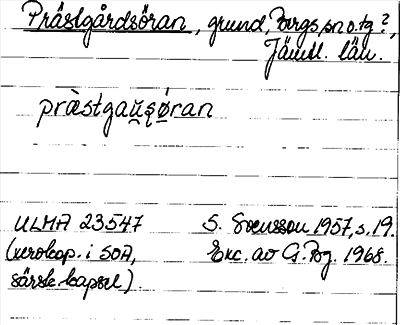 Prästgårdsöran, grund, Bergs sn o. tg?,
Jämtl. län.
præ̀stgau̯ṣøran
ULMA 23547 S. Svensson 1957, s. 19.
(xerokop. i SOA, Exc. av G. Bg. 1968.
särsk. kapsel)